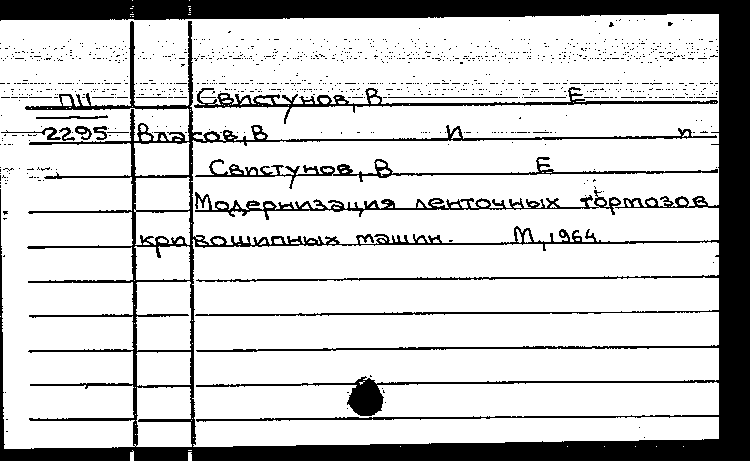 ПП Свистунов, В Е
2295 Власов, В И п
Свистунов, В Е
Модернизация ленточных тормозов
кривошипных машин. М., 1964.